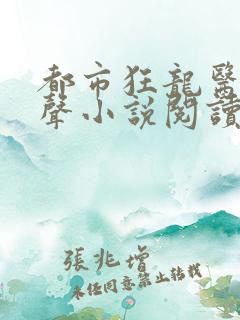 都市狂龍醫
聲小說閱讀
張兆增
未经同意禁止转载